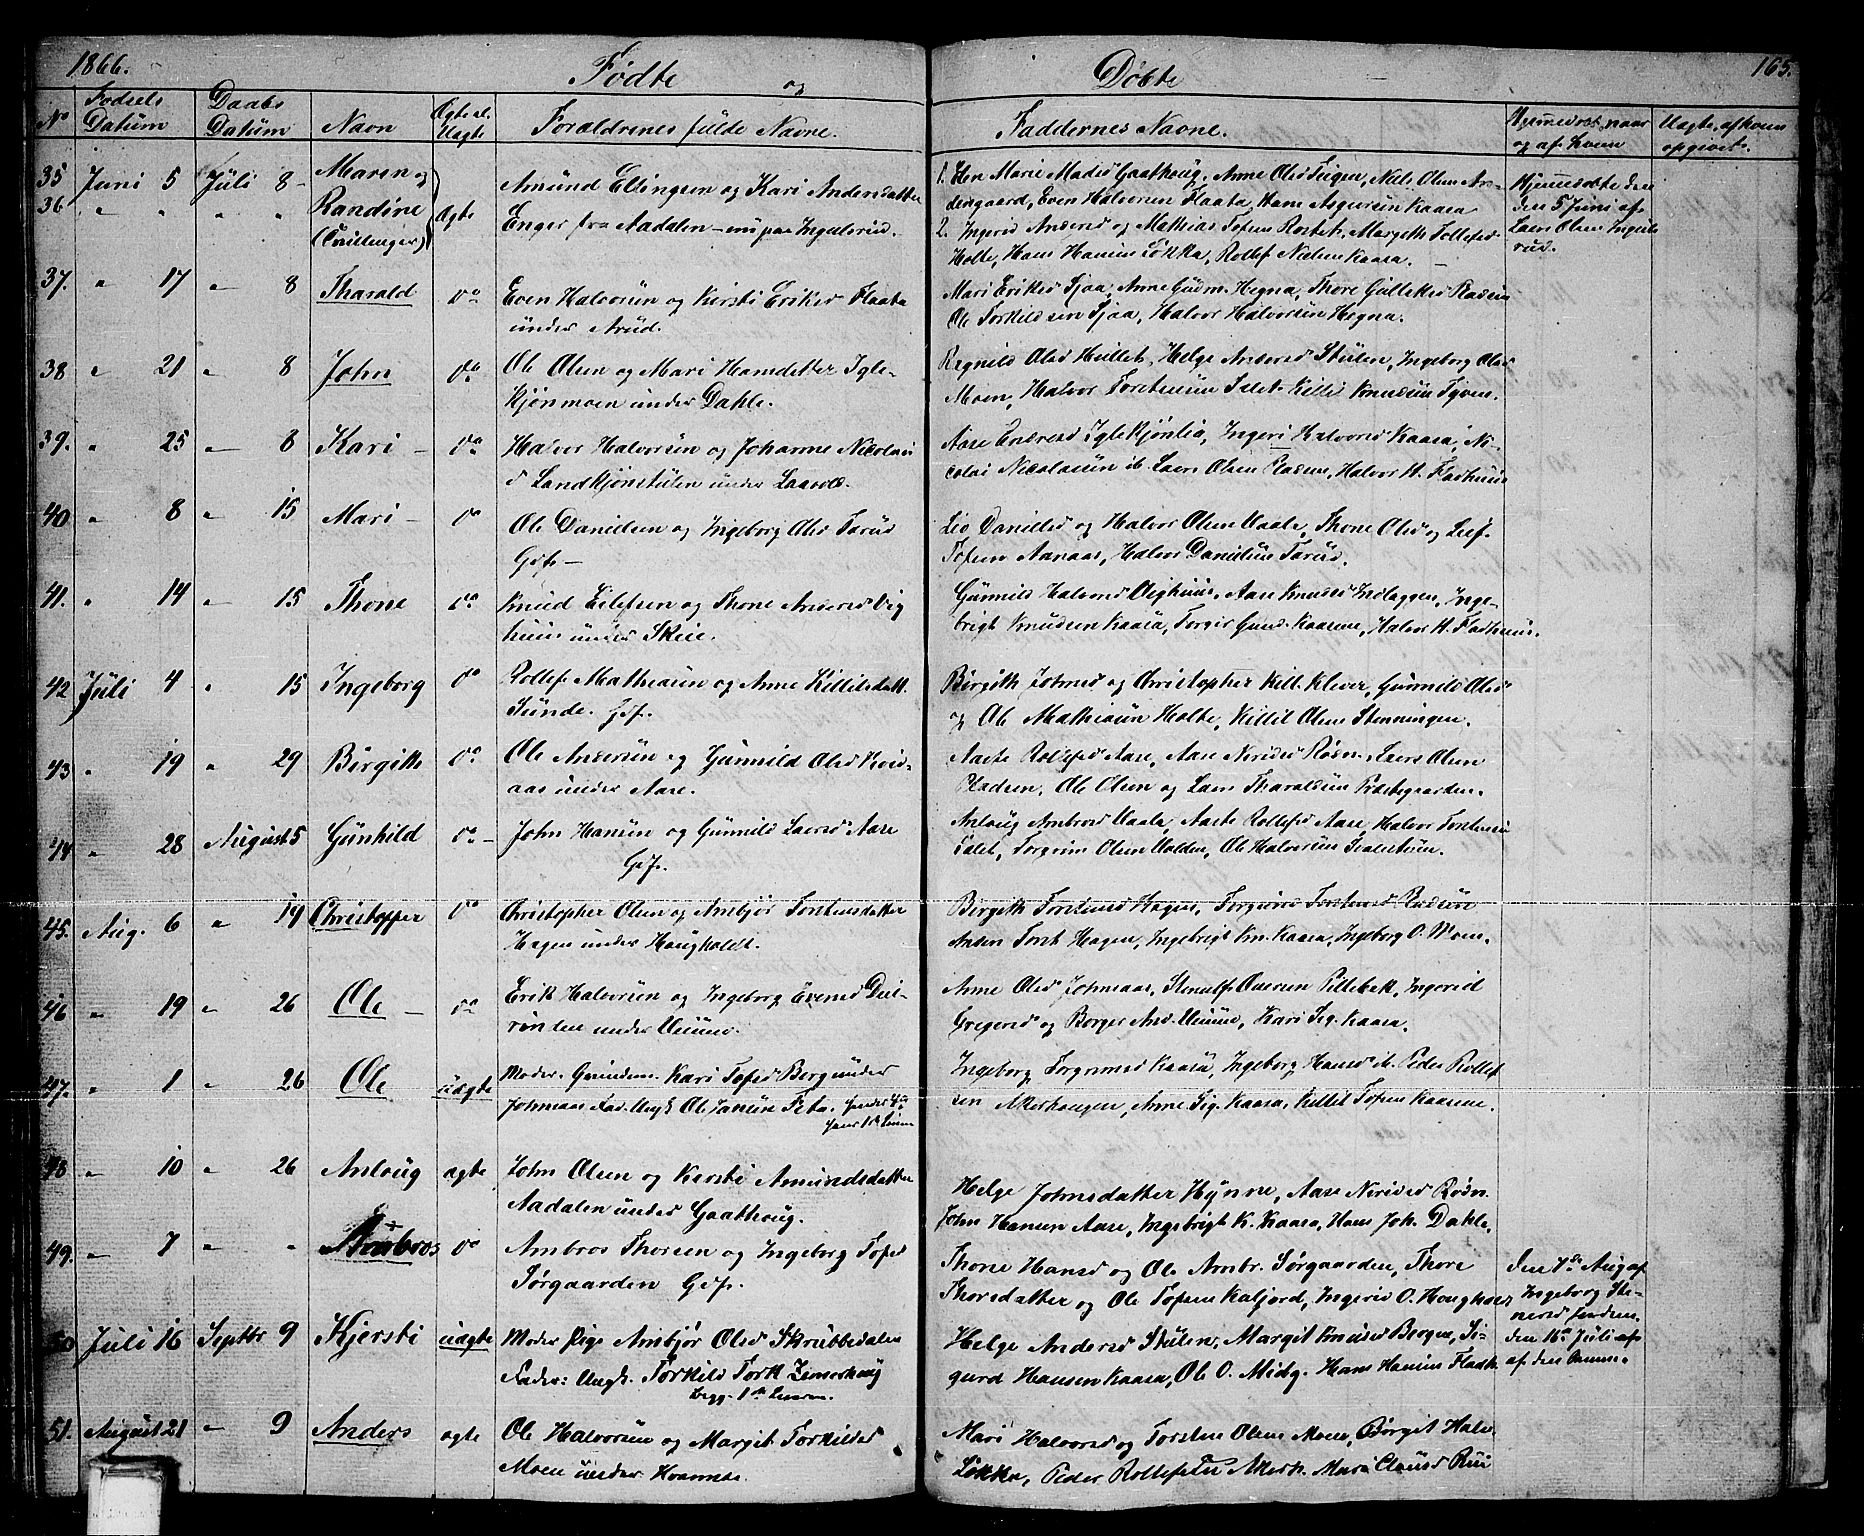 1866. Fødte og Døbte 165.
No Fødsels Datum Daabs Datum Navn Ægte el. Uægte Forældrenes fulde Navne. Faddernes Navne. Hjemmedøbt, naar og af hvem Uægte, af hvem opgivet.
35 Juni 5 Juli 8 Maren og
36 " " " " Randine (Tvillinger) Ægte
Amund Ellingsen og Kari Andersdatter
Enger fra Aadalen – nu paa Ingulsrud.
1. Marie Madsd Gaathoug, Anne Olsd Teigen, Niels Olsen
Even Halvorsen Flaata, Hans Asgersen Kaasa
2. Ingerid Andersd og Mathias Tofsen Rostet, Margith Tollefsd
Holte, Hans Hansen Løkka, Rollef Nielsen Kaasa.
Hjemmedøbte den
5 Juni af
Lars Olsen Inguls
rud.
37. " 17 " 8 Tharald do Even Halvorsen og Kirsti Eriksd Flaata
under Arud.
Mari Eriksd Tjaa, Anne Gudm. Hegna, Thore Gulleksd Pladsen
Ole Torkildsen Tjaa, Halvor Halvorsen Hegna.
38 " 21 " 8 John do Ole Olsen og Mari Hansdatter Igle-
kjønmoen under Dahle.
Regnild Olsd Hullet, Helge Andersd Stulen, Ingeborg Olsd
Moen, Halvor Torstensen Kittil Knudsen
39. " 25 " 8 Kari – do Halvor Halvorsen og Johanne Nicolai
d Landkjønstulen under
Aase Endresd Iglekjønlia, Ingeri Halvorsd Kaasa, Ni-
colai Nicolaisen ib. Lars Olsen Pladsen, Halvor H. Fladhuus
40 " 8 " 15 Mari – do Ole Danielsen og Ingeborg Olsd Tarud
Gdf. –
Liv Danielsd og Halvor Olsen Uaale, Thone Olsd og Leif
Tofsen Aanaas, Halvor Danielsen Tarud.
41. " 14 " 15 Thone do Knud Eilefsen og Thone Andersd Vig
huus under Skeie.
Gunnild Halvorsd Vighuus, Aase Knudsd Indlaggen, Inge-
brigt Knudsen Kaasa, Torgir Gund. Kaasene, Halvor H. Fladhuus.
42 Juli 4 " 15 Ingeborg do Rollef Mathiasen og Anne Kittilsdatt.
Sunde. Gdf.
Birgith Johnsd og Christopher Kitt. Klever, Gunnild Olsd
og Ole Mathiasen Holte, Kittil Olsen Stenningen.
43 " 19 " 29 Birgith do Ole Andersen og Gunnild Olsd Kvid-
aas under Aase.
Aaste Rollefsd Aase, Aase Nerisd Røsn. Lars Olsen
Pladsen, Ole Olsen og Lars Tharaldsen Præstegaarden.
44 " 28 August 5 Gunhild do – John Hansen og Gunnild Larsd Aase
Gdf.
Anloug Ambrosd Uaala, Aaste Rollefsd Aase, Halvor Torstensen
Torgrim Olsen Uolden, Ole Halvorsen
45. Aug. 6 " 19 Christopher do Christopher Olsen og Ambjør Torstensdatter
Hagen under Haugholdt.
Birgith Torstensd Hagen, Torgrim Torstensd Pladsen
Anders Torst. Hagen, Ingebrigt Kn. Kaasa, Ingeborg O. Moen.
46 " 19 " 26 Ole – do Erik Halvorsen og Ingeborg Evensd
under
Anne Olsd Johnsaas, Stenulf Pillebek, Ingerid
Gregersd og Borger And. Kari Sig. Kaasa.
47. " 1 " 26 Ole uægte Moder. Kari Tofsd Berg under
Johnsaas Fad. Ungk. Ole Jansen Teta. hendes
hans 1ste Leierm
Ingeborg Torgrimsd Kaasa, Ingeborg Hansd ib. Peder Rollef
sen Akerhaugen, Anne Sig. Kaasa, Kittil Tofsen Kaasene.
48 " 10 " 26 Anloug ægte John Olsen og Kirsti Amundsdatter
Aadalen under Gaathoug.
Helge Johnsdatter Hynne, Aase Nerisd Røsn.
John Hansen Aase, Ingebrigt K. Kaasa, Hans Joh. Dahle.
49. " 7 " " Ambros do Ambros Thorsen og Ingeborg Tofsd
Sørgaarden Gdf.
Thone Hansd og Ole Ambr. Sørgaarden, Thore
Thorsdatter og Ole Tofsen Kaljord, Ingerid O. Houghoss
den 7de Aug af
Ingeborg Ste-
nersd Jorden.
50 Juli 16 Septbr 9 Kjersti uægte Moder Pige Ambjør Olsd Skrubbedalen
Fader: Ungk. Torkild Tork.
Begg. 1ste Leierm.
Helge Andersd Stulen, Margit Knudsd Bergen, Si-
gurd Hansen Kaasa, Ole O. Midg. Hans Hansen Fladh
den 16de Juli af
af den Samme.
51. August 21 " 9 Anders ægte Ole Halvorsen og Margit Torkildsd
Moen under Kvamme.
Mari Halvorsd og Torsten Olsen Moen, Børget Halv.
Løkka, Peder Rollefsen Akerh. Mari Clausd Rui